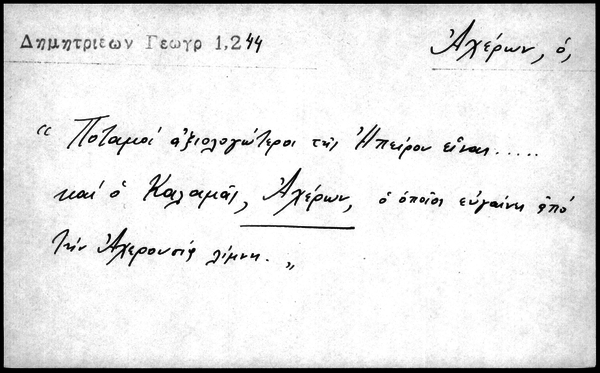 Δημητριεων Γεωγρ 1,244
Ἀχέρων, ὁ,
“ Ποταμοί ἀξιολογώτεροι τῆς Ἠπείρου εἶναι.....
καί ὁ Καλαμᾶς, Ἀχέρων, ὁ ὁποῖος εὐγαίνει ἀπό
τήν Ἀχερουσίᾳ λίμνη. „